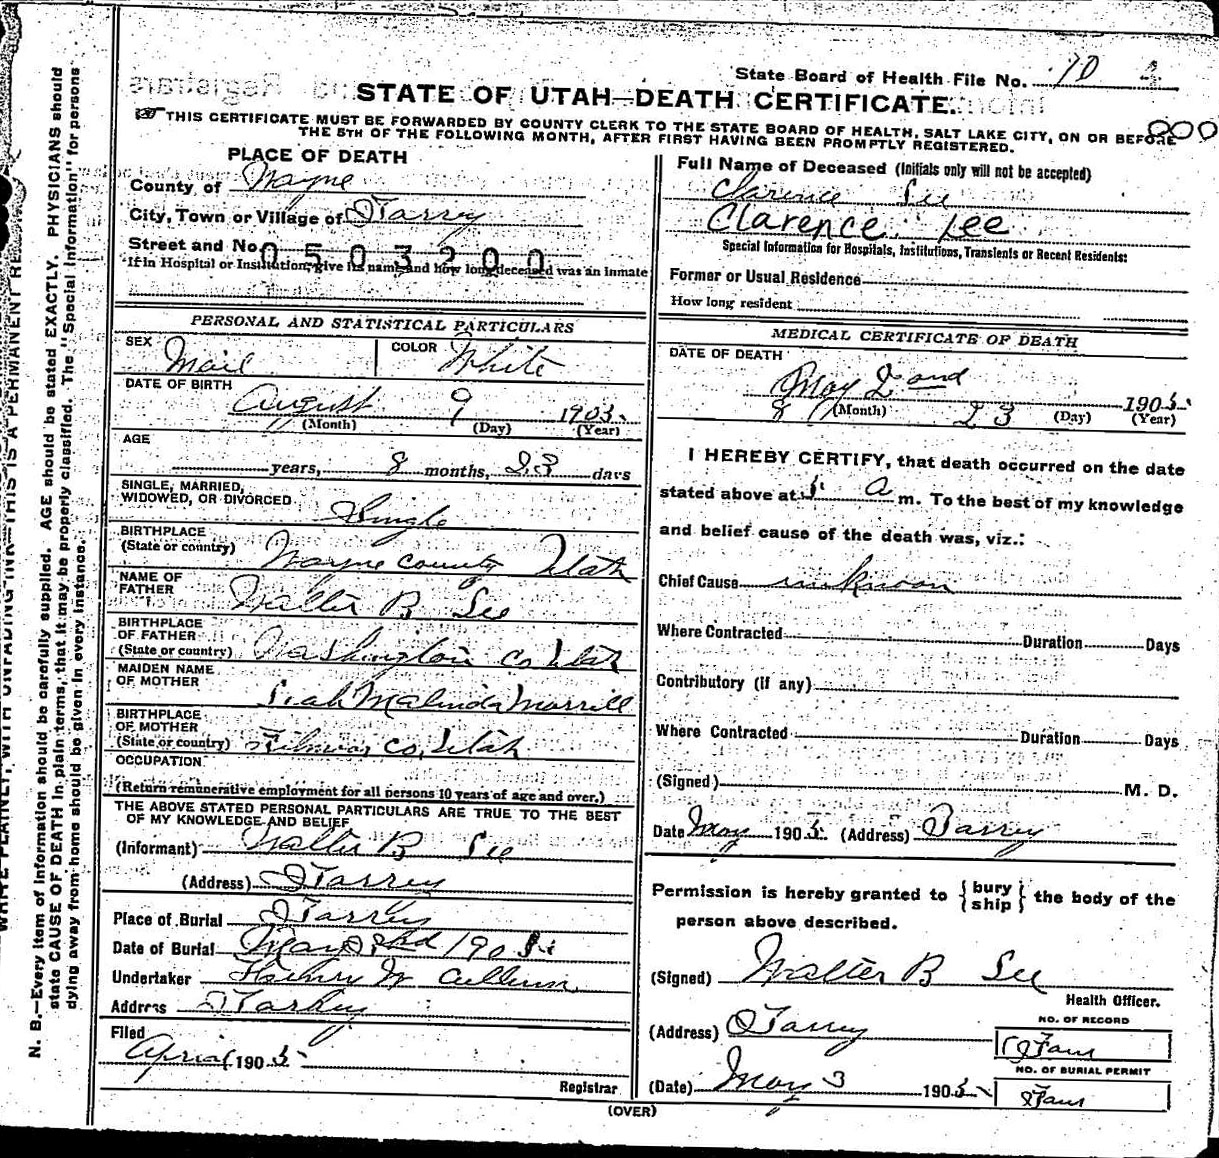 State Board of Health File No. 70 4
STATE OF UTAH—DEATH CERTIFICATE.
THIS CERTIFICATE MUST BE FORWARDED BY COUNTY CLERK TO THE STATE BOARD OF HEALTH, SALT LAKE CITY, ON OR BEFORE
THE 5TH OF THE FOLLOWING MONTH, AFTER FIRST HAVING BEEN PROMPTLY REGISTERED.
PLACE OF DEATH
County of Wayne
City, Town or Village of Torrey
Street and No. 0503200
If in Hospital or Institution, give its name and how long deceased was an inmate
Full Name of Deceased (Initials only will not be accepted)
Clarence Lee
Clarence Lee
Special Information for Hospitals, Institutions, Transients or Recent Residents:
Former or Usual Residence
How long resident
PERSONAL AND STATISTICAL PARTICULARS
SEX Mail COLOR White
DATE OF BIRTH
August 9 1903
(Month) (Day) (Year)
AGE
years, 8 months, 23 days
SINGLE, MARRIED,
WIDOWED, OR DIVORCED Single
BIRTHPLACE
(State or country) Wayne county Utah
NAME OF
FATHER Walter B Lee
BIRTHPLACE
OF FATHER
(State or country) Washington Co Utah
MAIDEN NAME
OF MOTHER
Leah Malinda Morrill
BIRTHPLACE
OF MOTHER
(State or country) Co, Utah
OCCUPATION
(Return remunerative employment for all persons 10 years of age and over.)
THE ABOVE STATED PERSONAL PARTICULARS ARE TRUE TO THE BEST
OF MY KNOWLEDGE AND BELIEF
(Informant) Walter B Lee
(Address) Torrey
Place of Burial Torrey
Date of Burial 190
Undertaker W
Address Torrey
Filed
April 1905
Registrar
MEDICAL CERTIFICATE OF DEATH
DATE OF DEATH
May 2and 1905
8 (Month) 23 (Day) (Year)
I HEREBY CERTIFY, that death occurred on the date
stated above at 5 a m. To the best of my knowledge
and belief cause of the death was, viz.:
Chief Cause unknoon
Where Contracted Duration Days
Contributory (if any)
Where Contracted Duration Days
(Signed) M. D.
Date May 1905 (Address) Torrey
Permission is hereby granted to {bury ship} the body of the
person above described.
(Signed) Walter B Lee
Health Officer.
(Address) Torrey
NO. OF RECORD
Four
NO. OF BURIAL PERMIT
Four
(Date) May 3 1905
(OVER)
WRITE PLAINLY, WITH UNFADING INK—THIS IS A PERMANENT
N. B.—Every item of information should be carefully supplied. AGE should be stated EXACTLY. PHYSICIANS should
state CAUSE OF DEATH in plain terms, that it may be properly classified. The "Special Information" for persons
dying away from home should be given in every instance.